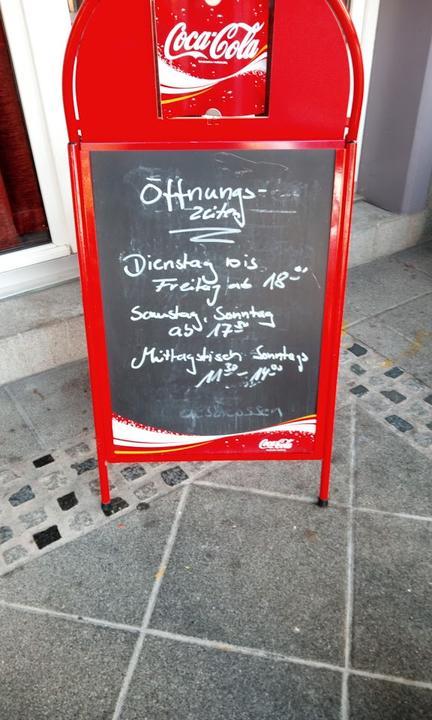 Coca-Cola
Öffnungs-
zeiten
Dienstag bis
Freitag ab 18⁰⁰
Samstag, Sonntag
ab 17³⁰
Mittagstisch Sonntags
11³⁰-14⁰⁰
Coca-Cola